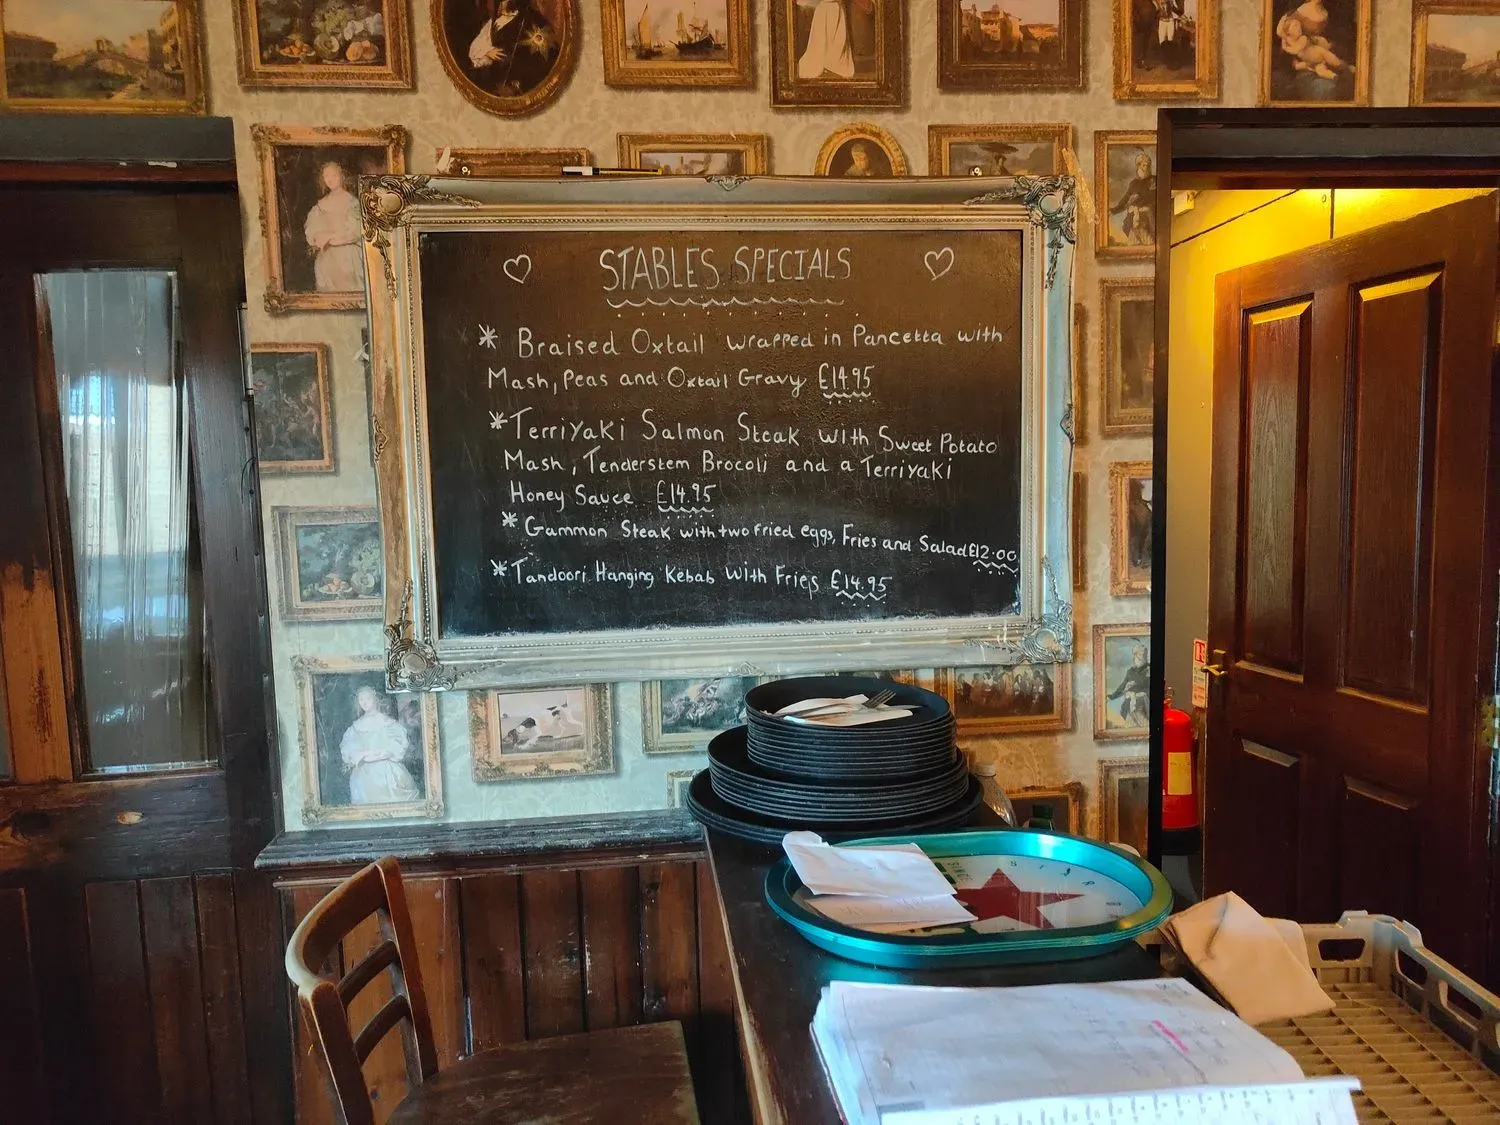 ♡ STABLES SPECIALS ♡
* Braised Oxtail wrapped in Pancetta with
Mash, Peas and Oxtail Gravy £14.95
* Terriyaki Salmon Steak with Sweet Potato
Mash, Tenderstem Brocoli and a Terriyaki
Honey Sauce £14.95
* Gammon Steak with two fried eggs, Fries and Salad £12.00
* Tandoori Hanging Kebab with Fries £14.95